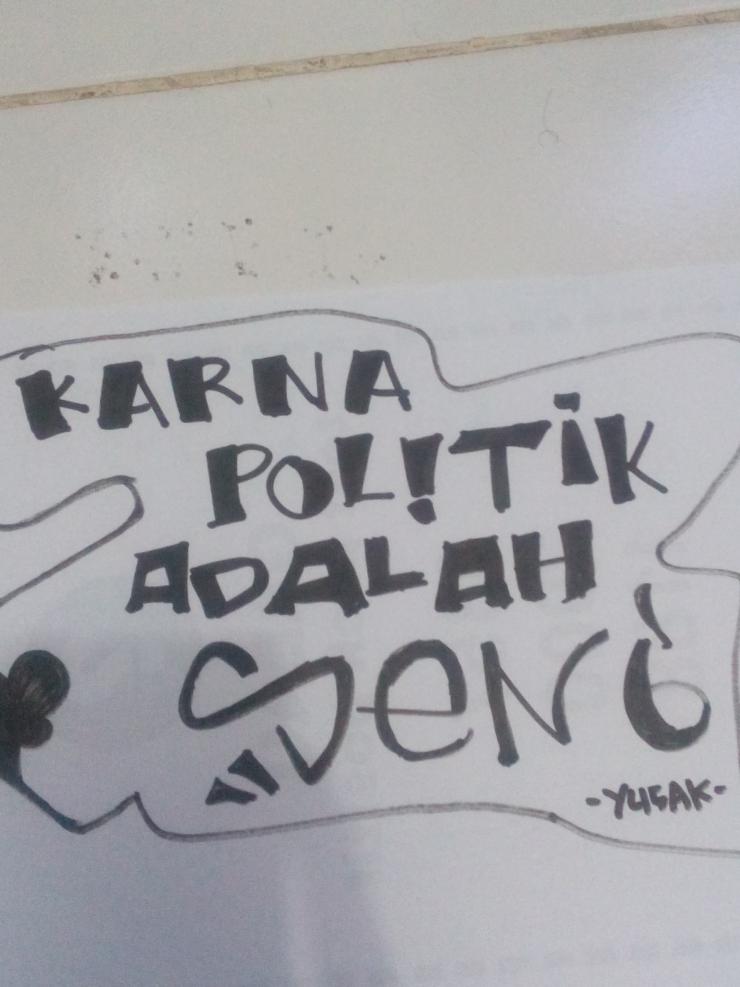 KARNA
POLITIK
ADALAH
SENi
-YUSAK-